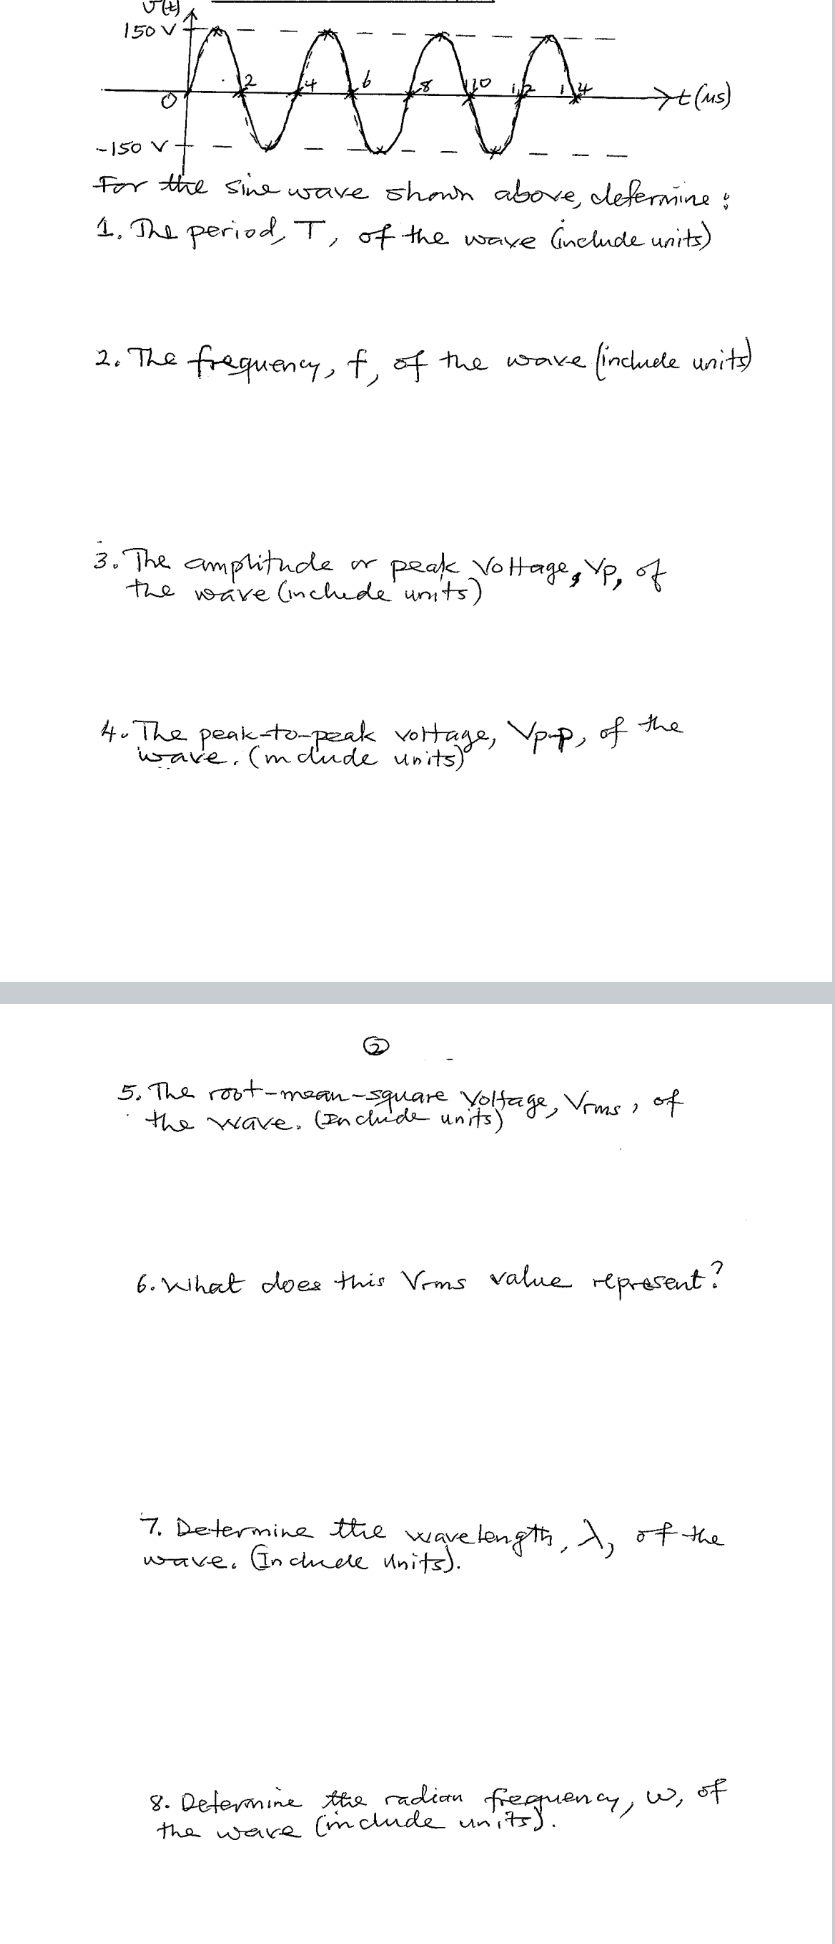 v(t)
150 V
2 4 6 8 10 12 14
0
t(μs)
-150 V
For the sine wave shown above, determine:
1. The period, T, of the wave (include units)
2. The frequency, f, of the wave (include units)
3. The amplitude or peak voltage, Vp, of
the wave (include units)
4. The peak-to-peak voltage, Vp-p, of the
wave. (include units)
2
5. The root-mean-square Voltage, Vrms, of
the wave. (Include units)
6. What does this Vrms value represent?
7. Determine the wavelength, λ, of the
wave. (Include Units).
8. Determine the radian frequency, ω, of
the wave (include units).